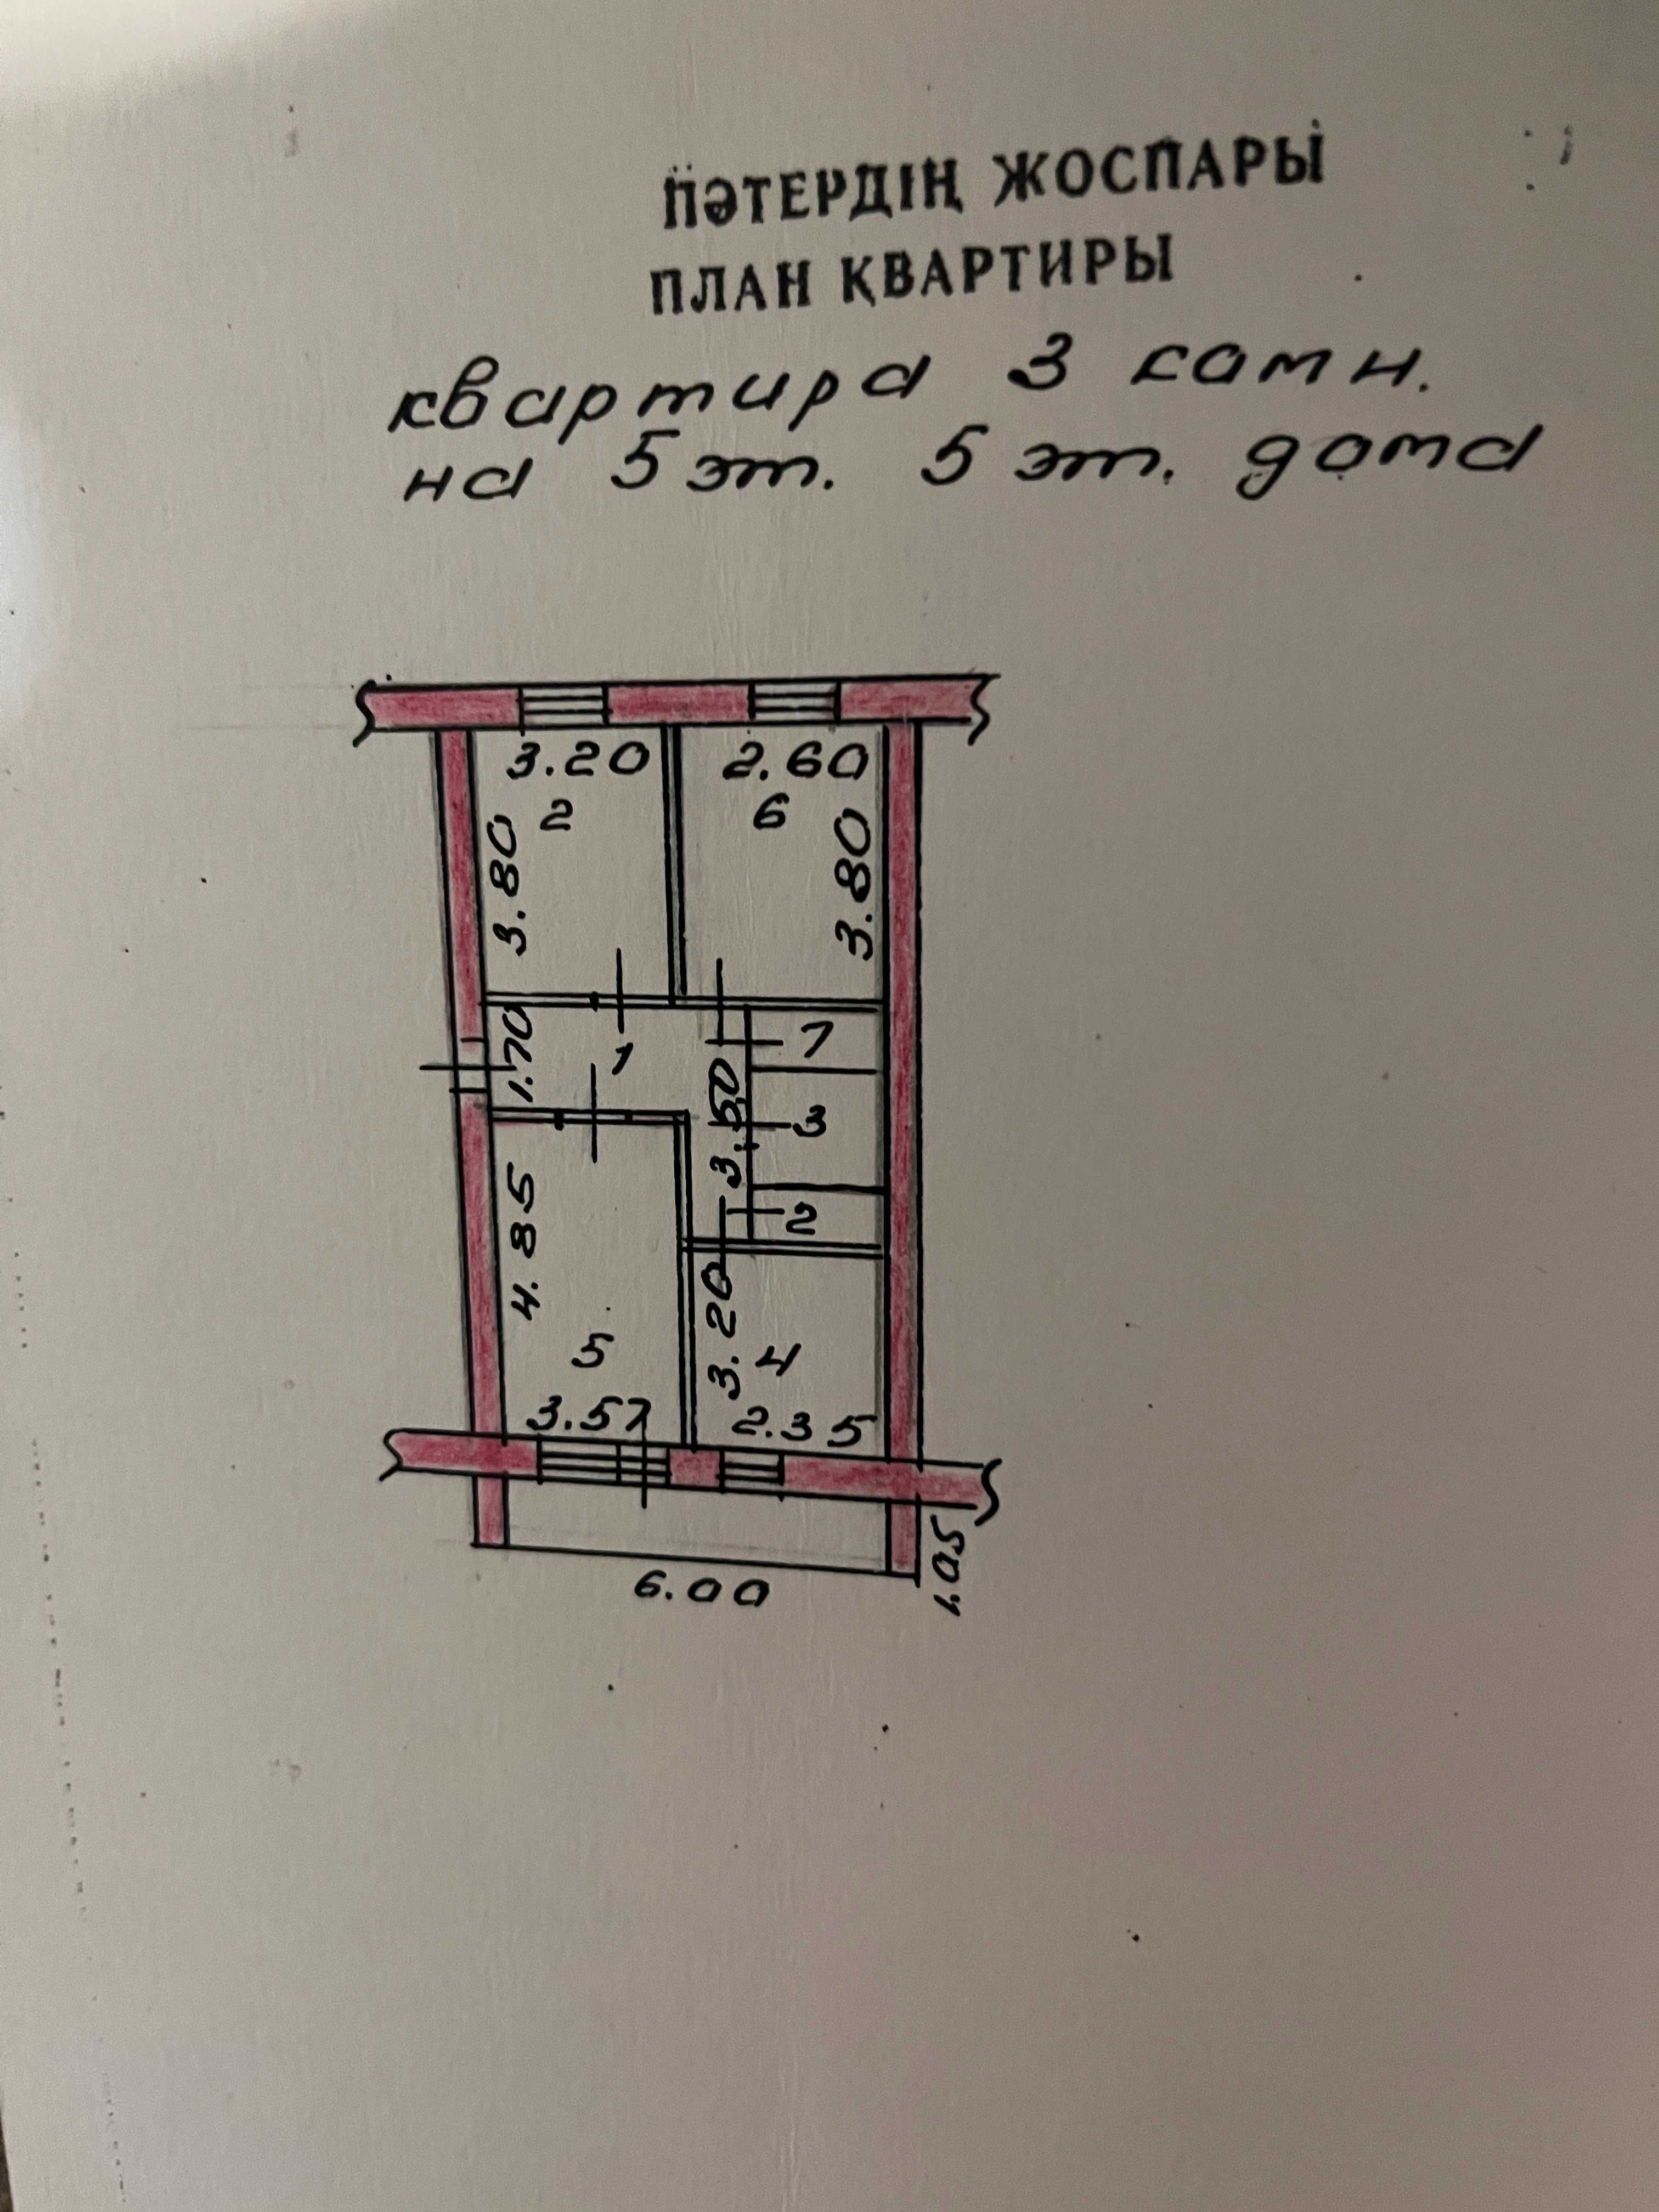 ПӘТЕРДІҢ ЖОСПАРЫ
ПЛАН ҚВАРТИРЫ
квартира 3 комн.
на 5 эт. 5 эт. дома
3.20
2.60
2
6
3.80
3.80
1.70
1
7
3.50
3
2
4.85
3.20
5
4
3.57
2.35
6.00
1.05